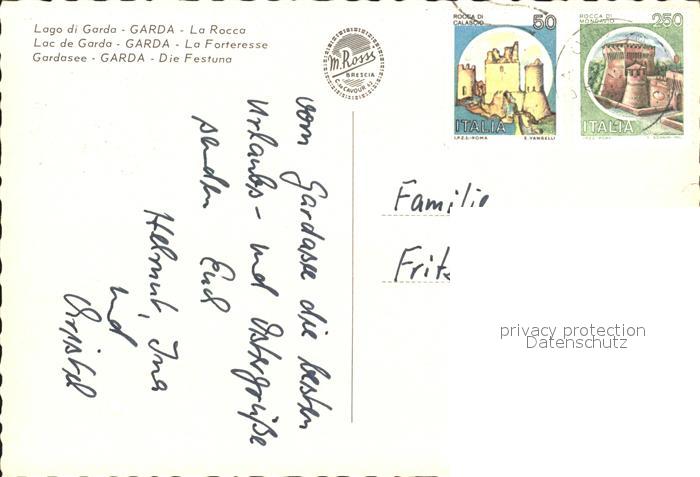 Lago di Garda - GARDA - La Rocca
Lac de Garda - GARDA - La Forteresse
Gardasee - GARDA - Die Festuna
M. Rossi
BRESCIA
C. CAVOUR 42
ROCCA DI CALASCIO
50
ITALIA
I.P.Z.S.-ROMA E. VANGELLI
ROCCA DI MONDAVIO
250
ITALIA
I.P.Z.S.-ROMA
vom Gardasee die besten
Urlaubs- und Ostergrüße
senden Euch
Helmut, Ina
und
Christel
Familie
Fritz
privacy protection
Datenschutz